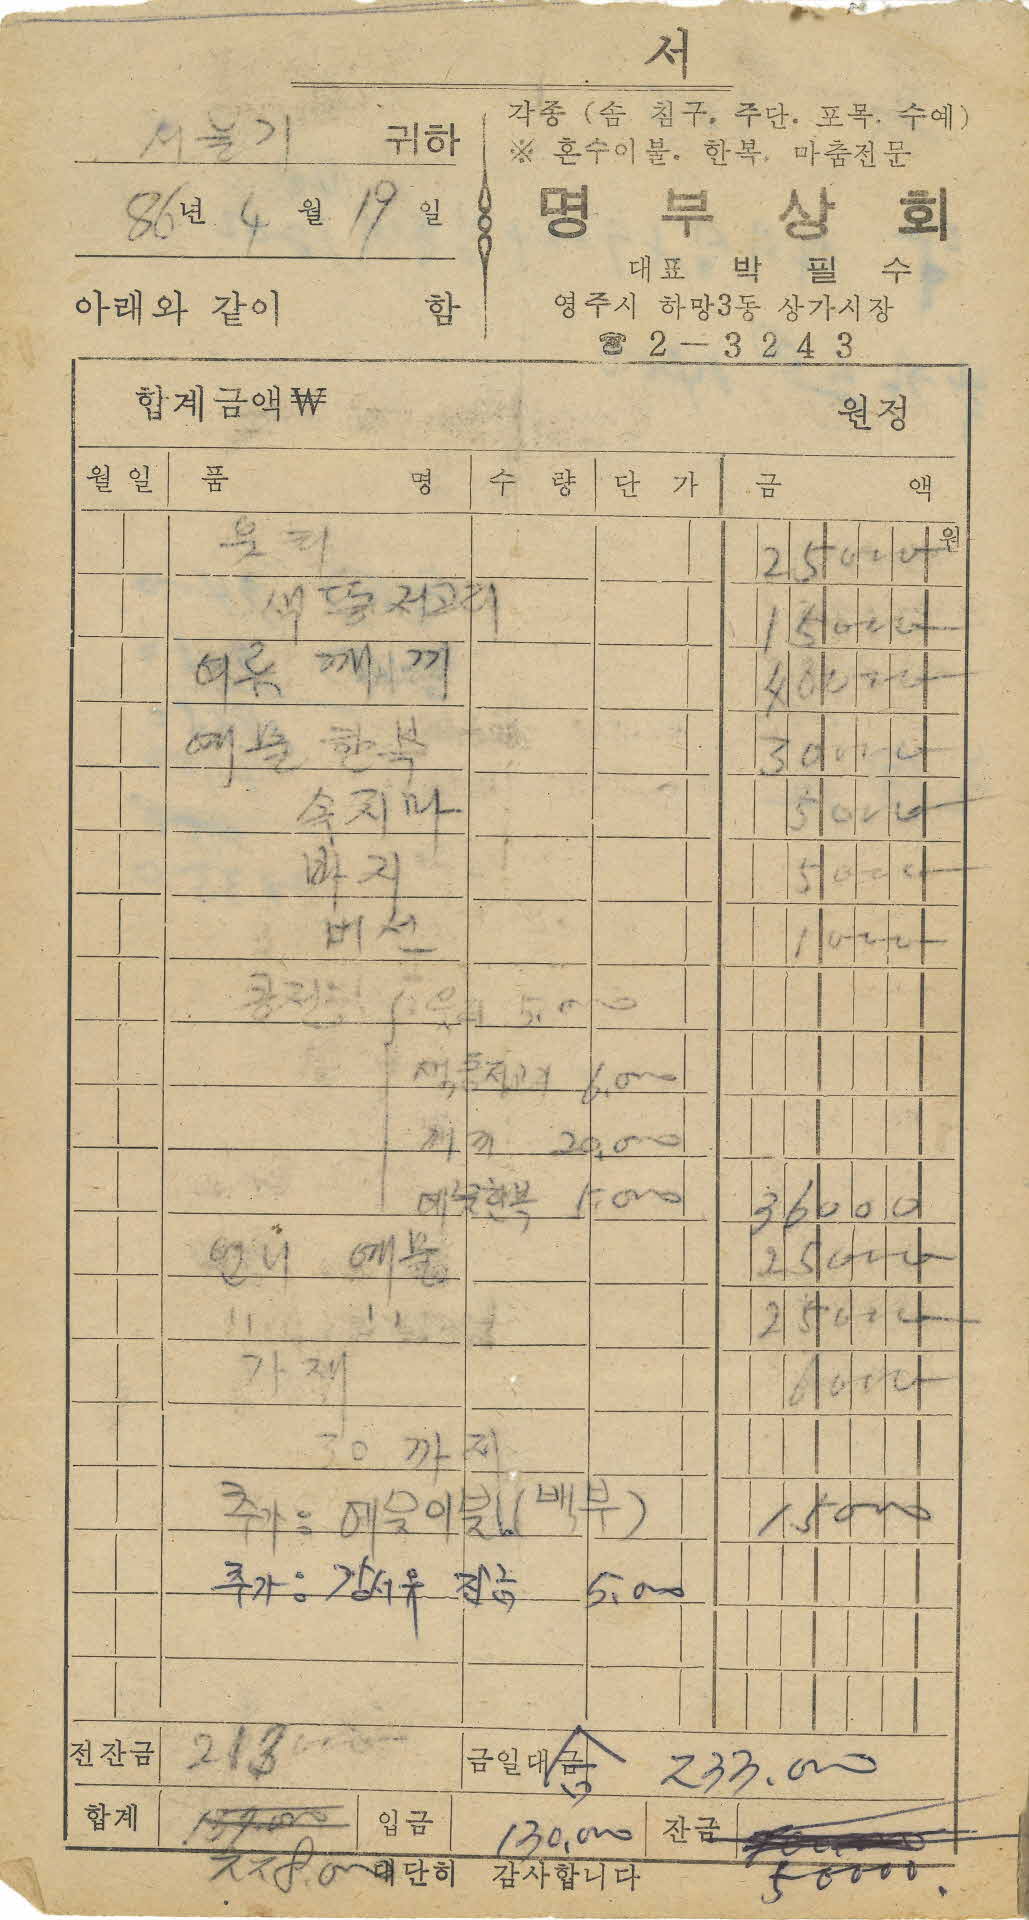 서
귀하
86년 4월 19일
아래와 같이 함
각종 (솜 침구. 주단. 포목. 수예)
※ 혼수이불. 한복. 마춤전문
명부상회
대표 박필수
영주시 하망3동 상가시장
☎ 2-3243
합계금액₩ 원정
월 일 품명 수량 단가 금액
25000 원
색동저고리 15000
여름 깨끼 40000
예물 한복 30000
속치마 5000
바지 5000
버선 1000
5,000
색동저고리 6,000
깨끼 20,000
예물한복 5,000 36000
언니 예물 25000
25000
6000
30 까지
추가: 예물이불 (백부) 15000
추가: 5,000
전잔금 213000 금일대금 233,000
합계 입금 130,000 잔금
228,000 대단히 감사합니다 50000.